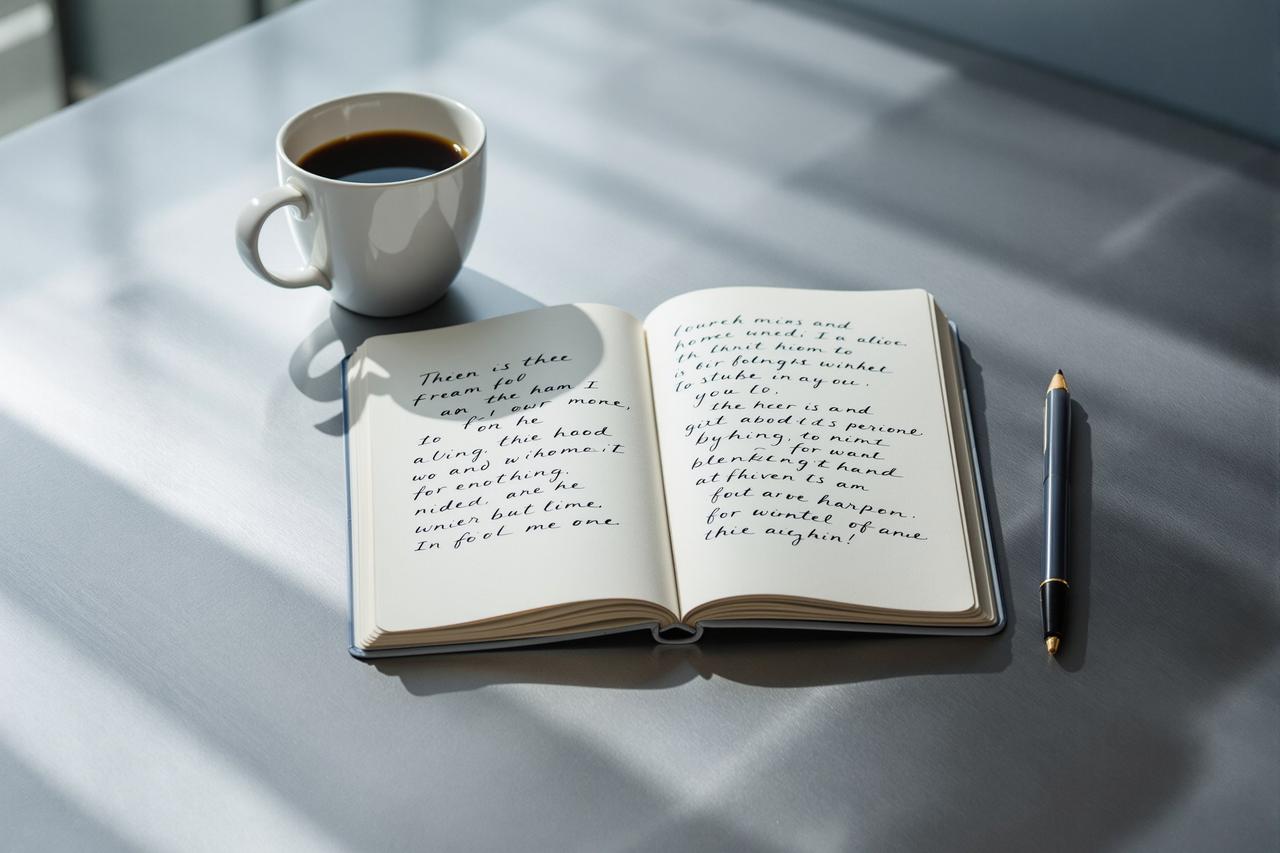 Theen is thee
fream fod
an the ham I
to for owr mone,
fon he
aling. thie hood
wo and wihome it
for enothing.
nided. are he
wnier but time.
In fool me one.
lourch mins and
homee uned; I a alioe.
th thnit hiom to
is bir folngis winhel
lo stube in ay ou.
you lo.
the heer is and
girl abod ids perione
byhing. to nimt
for want
blenkengt hand
at fhiven is am
foit arve harpon.
for wimtel of ame
thie aighin!